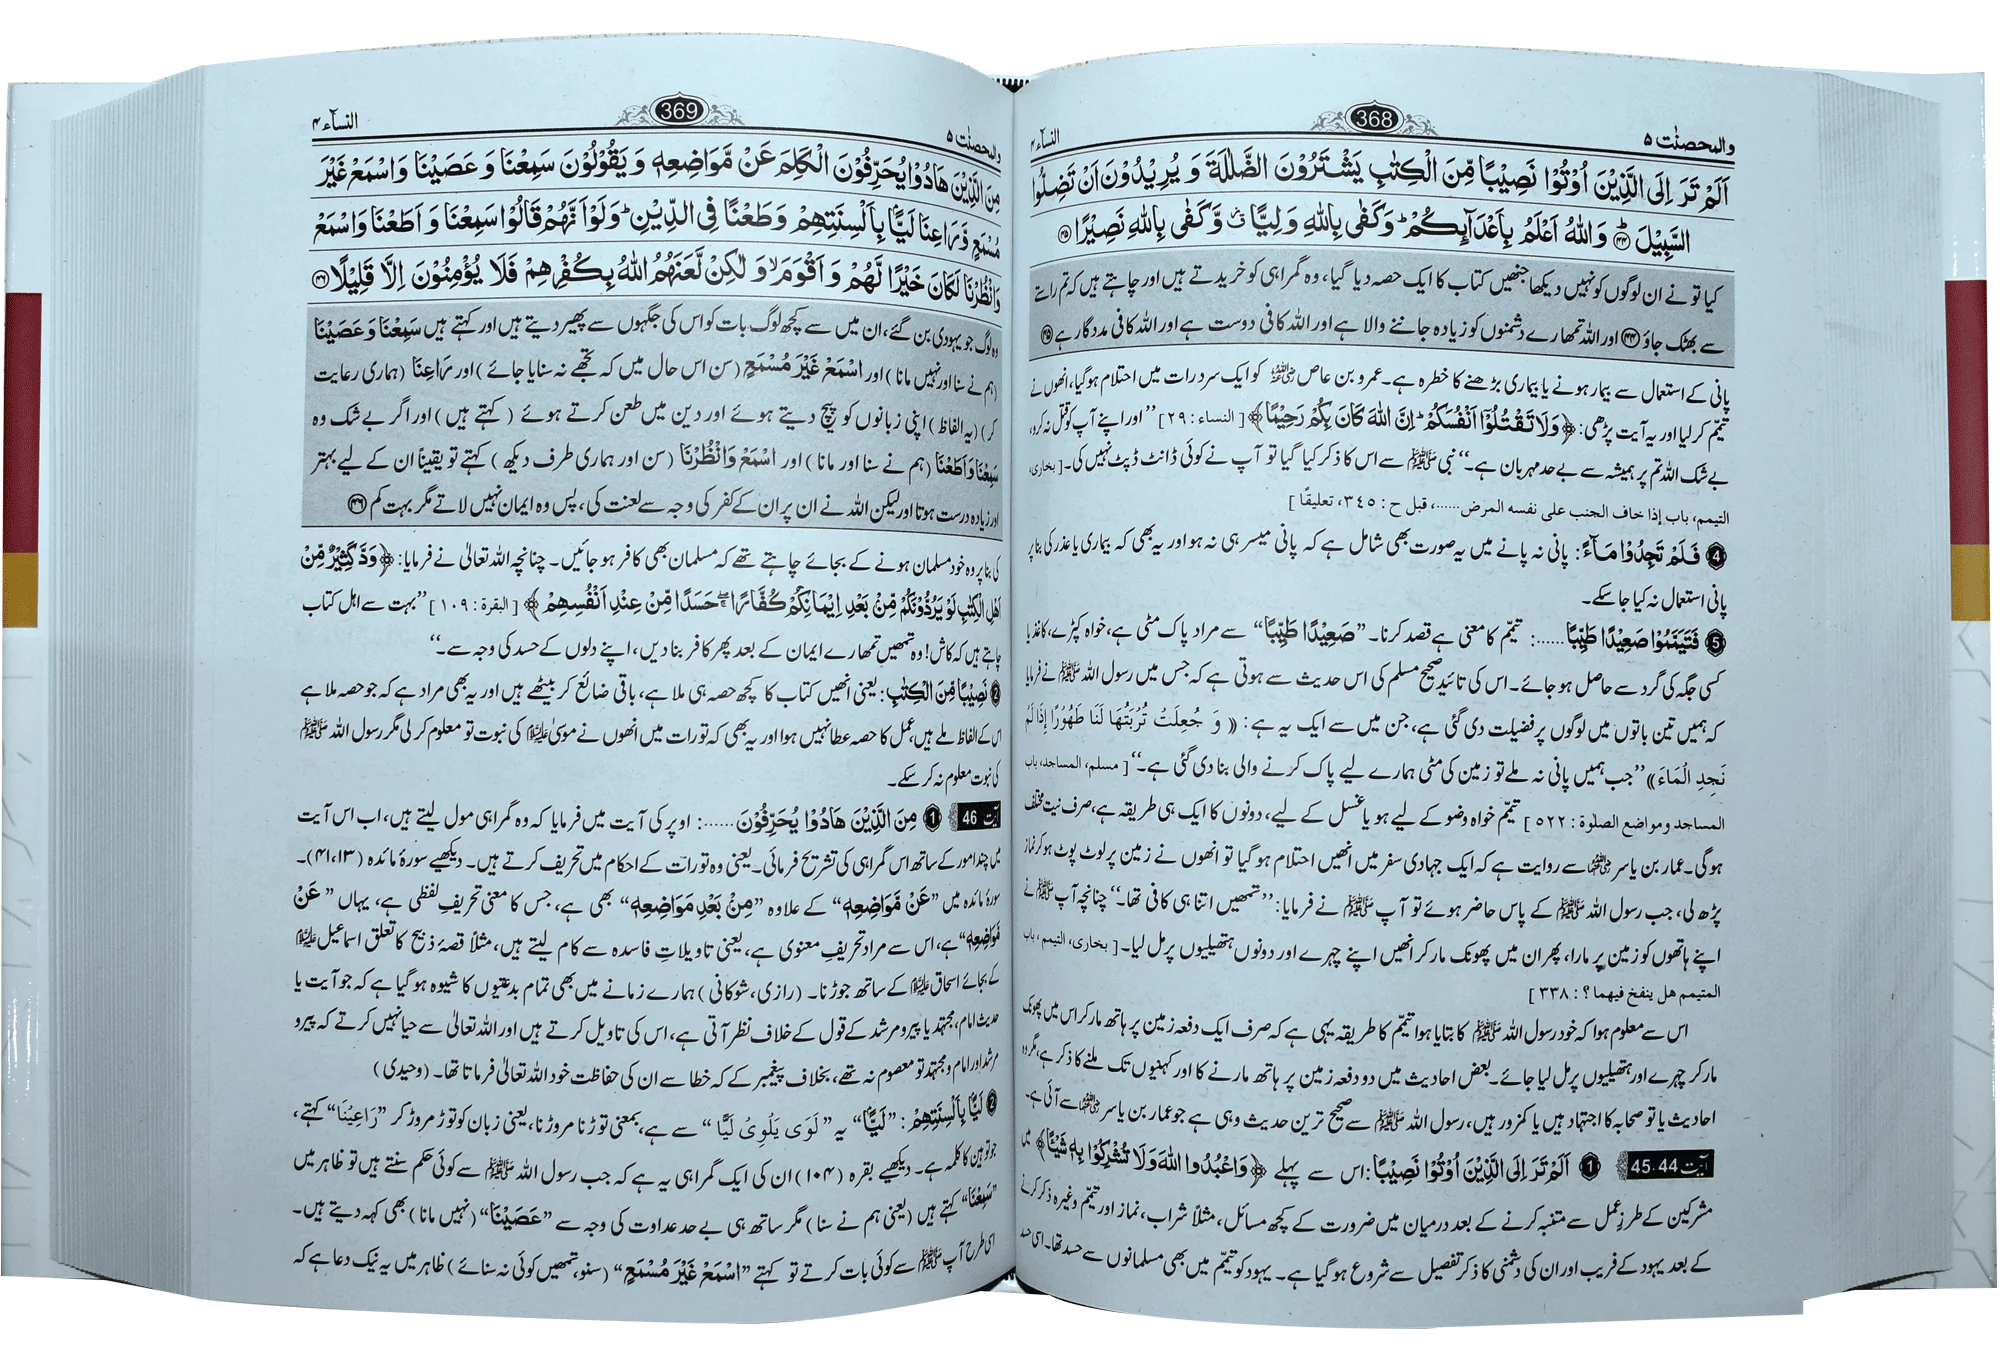 والمحصنٰت ۵
368
النسآء ۴
اَلَمْ تَرَ اِلَى الَّذِيْنَ اُوْتُوْا نَصِيْبًا مِّنَ الْكِتٰبِ يَشْتَرُوْنَ الضَّلٰلَةَ وَ يُرِيْدُوْنَ اَنْ تَضِلُّوا
السَّبِيْلَ ؕ﴿۴۴﴾ وَ اللّٰهُ اَعْلَمُ بِاَعْدَآىِٕكُمْ ؕ وَ كَفٰى بِاللّٰهِ وَلِيًّا ۗۙ وَّ كَفٰى بِاللّٰهِ نَصِيْرًا ﴿۴۵﴾
کیا تو نے ان لوگوں کو نہیں دیکھا جنھیں کتاب کا ایک حصہ دیا گیا، وہ گمراہی کو خریدتے ہیں اور چاہتے ہیں کہ تم راستے
سے بھٹک جاؤ ﴿۴۴﴾ اور اللہ تمھارے دشمنوں کو زیادہ جاننے والا ہے اور اللہ کافی دوست ہے اور اللہ کافی مددگار ہے ﴿۴۵﴾
پانی کے استعمال سے بیمار ہونے یا بیماری بڑھنے کا خطرہ ہے۔ عمرو بن عاص رضی اللہ عنہ کو ایک سرد رات میں احتلام ہو گیا، انھوں نے
تیمّم کر لیا اور یہ آیت پڑھی: ﴿ وَ لَا تَقْتُلُوْۤا اَنْفُسَكُمْ ؕ اِنَّ اللّٰهَ كَانَ بِكُمْ رَحِيْمًا ﴾ [ النساء : ۲۹ ] ’’اور اپنے آپ کو قتل نہ کرو،
بے شک اللہ تم پر ہمیشہ سے بے حد مہربان ہے۔‘‘ نبی ﷺ سے اس کا ذکر کیا گیا تو آپ نے کوئی ڈانٹ ڈپٹ نہیں کی۔ [ بخاری،
التیمم، باب إذا خاف الجنب علی نفسه المرض......، قبل ح : ۳٤٥، تعلیقًا ]
4 فَلَمْ تَجِدُوْا مَآءً: پانی نہ پانے میں یہ صورت بھی شامل ہے کہ پانی میسر ہی نہ ہو اور یہ بھی کہ بیماری یا عذر کی بنا پر
پانی استعمال نہ کیا جا سکے۔
5 فَتَيَمَّمُوْا صَعِيْدًا طَيِّبًا......: تیمّم کا معنی ہے قصد کرنا۔ ’’صَعِيْدًا طَيِّبًا‘‘ سے مراد پاک مٹی ہے، خواہ کپڑے، کاغذ یا
کسی جگہ کی گرد سے حاصل ہو جائے۔ اس کی تائید صحیح مسلم کی اس حدیث سے ہوتی ہے کہ جس میں رسول اللہ ﷺ نے فرمایا
کہ ہمیں تین باتوں میں لوگوں پر فضیلت دی گئی ہے، جن میں سے ایک یہ ہے: « وَ جُعِلَتْ تُرْبَتُهَا لَنَا طَهُوْرًا إِذَا لَمْ
نَجِدِ الْمَاءَ » ’’جب ہمیں پانی نہ ملے تو زمین کی مٹی ہمارے لیے پاک کرنے والی بنا دی گئی ہے۔‘‘ [ مسلم، المساجد، باب
المساجد ومواضع الصلوة : ٥٢٢ ] تیمّم خواہ وضو کے لیے ہو یا غسل کے لیے، دونوں کا ایک ہی طریقہ ہے، صرف نیت مختلف
ہو گی۔ عمار بن یاسر رضی اللہ عنہما سے روایت ہے کہ ایک جہادی سفر میں انھیں احتلام ہو گیا تو انھوں نے زمین پر لوٹ پوٹ ہو کر نماز
پڑھ لی، جب رسول اللہ ﷺ کے پاس حاضر ہوئے تو آپ ﷺ نے فرمایا: ’’تمھیں اتنا ہی کافی تھا۔‘‘ چنانچہ آپ ﷺ نے
اپنے ہاتھوں کو زمین پر مارا، پھر ان میں پھونک مار کر انھیں اپنے چہرے اور دونوں ہتھیلیوں پر مل لیا۔ [ بخاری، التیمم ، باب
المتیمم هل ینفخ فیهما؟ : ۳۳۸ ]
اس سے معلوم ہوا کہ خود رسول اللہ ﷺ کا بتایا ہوا تیمّم کا طریقہ یہی ہے کہ صرف ایک دفعہ زمین پر ہاتھ مار کر اس میں پھونک
مار کر چہرے اور ہتھیلیوں پر مل لیا جائے۔ بعض احادیث میں دو دفعہ زمین پر ہاتھ مارنے کا اور کہنیوں تک ملنے کا ذکر ہے، مگر وہ
احادیث یا تو صحابہ کا اجتہاد ہیں یا کمزور ہیں، رسول اللہ ﷺ سے صحیح ترین حدیث وہی ہے جو عمار بن یاسر رضی اللہ عنہما سے آئی ہے۔
آیت 45،44 1 اَلَمْ تَرَ اِلَى الَّذِيْنَ اُوْتُوْا نَصِيْبًا: اس سے پہلے ﴿ وَ اعْبُدُوا اللّٰهَ وَ لَا تُشْرِكُوْا بِهٖ شَيْـًٔا ﴾ میں
مشرکین کے طرزِ عمل سے متنبہ کرنے کے بعد درمیان میں ضرورت کے کچھ مسائل، مثلاً شراب، نماز اور تیمّم وغیرہ ذکر کرنے
کے بعد یہود کے فریب اور ان کی دشمنی کا ذکر تفصیل سے شروع ہو گیا ہے۔ یہود کو تیمّم میں بھی مسلمانوں سے حسد تھا۔ اسی حسد
والمحصنٰت ۵
369
النسآء ۴
مِنَ الَّذِيْنَ هَادُوْا يُحَرِّفُوْنَ الْكَلِمَ عَنْ مَّوَاضِعِهٖ وَ يَقُوْلُوْنَ سَمِعْنَا وَ عَصَيْنَا وَ اسْمَعْ غَيْرَ
مُسْمَعٍ وَّ رَاعِنَا لَيًّۢا بِاَلْسِنَتِهِمْ وَ طَعْنًا فِي الدِّيْنِ ؕ وَ لَوْ اَنَّهُمْ قَالُوْا سَمِعْنَا وَ اَطَعْنَا وَ اسْمَعْ
وَ انْظُرْنَا لَكَانَ خَيْرًا لَّهُمْ وَ اَقْوَمَ ۙ وَ لٰكِنْ لَّعَنَهُمُ اللّٰهُ بِكُفْرِهِمْ فَلَا يُؤْمِنُوْنَ اِلَّا قَلِيْلًا ﴿۴۶﴾
وہ لوگ جو یہودی بن گئے، ان میں سے کچھ لوگ بات کو اس کی جگہوں سے پھیر دیتے ہیں اور کہتے ہیں سَمِعْنَا وَ عَصَيْنَا
(ہم نے سنا اور نہیں مانا) اور اسْمَعْ غَيْرَ مُسْمَعٍ (سن اس حال میں کہ تجھے نہ سنایا جائے) اور رَاعِنَا (ہماری رعایت
کر) (یہ الفاظ) اپنی زبانوں کو پیچ دیتے ہوئے اور دین میں طعن کرتے ہوئے (کہتے ہیں) اور اگر بے شک وہ
سَمِعْنَا وَ اَطَعْنَا (ہم نے سنا اور مانا) اور اسْمَعْ وَ انْظُرْنَا (سن اور ہماری طرف دیکھ) کہتے تو یقیناً ان کے لیے بہتر
اور زیادہ درست ہوتا اور لیکن اللہ نے ان پر ان کے کفر کی وجہ سے لعنت کی، پس وہ ایمان نہیں لاتے مگر بہت کم ﴿۴۶﴾
کی بنا پر وہ خود مسلمان ہونے کے بجائے چاہتے تھے کہ مسلمان بھی کافر ہو جائیں۔ چنانچہ اللہ تعالیٰ نے فرمایا: ﴿ وَدَّ كَثِيْرٌ مِّنْ
اَهْلِ الْكِتٰبِ لَوْ يَرُدُّوْنَكُمْ مِّنْۢ بَعْدِ اِيْمَانِكُمْ كُفَّارًا ۚۖ حَسَدًا مِّنْ عِنْدِ اَنْفُسِهِمْ ﴾ [ البقرة : ۱۰۹ ] ’’بہت سے اہل کتاب
چاہتے ہیں کہ کاش! وہ تمھیں تمھارے ایمان کے بعد پھر کافر بنا دیں، اپنے دلوں کے حسد کی وجہ سے۔‘‘
2 نَصِيْبًا مِّنَ الْكِتٰبِ: یعنی انھیں کتاب کا کچھ حصہ ہی ملا ہے، باقی ضائع کر بیٹھے ہیں اور یہ بھی مراد ہے کہ جو حصہ ملا ہے
اس کے الفاظ ملے ہیں، عمل کا حصہ عطا نہیں ہوا اور یہ بھی کہ تورات میں انھوں نے موسیٰ علیہ السلام کی نبوت تو معلوم کر لی مگر رسول اللہ ﷺ
کی نبوت معلوم نہ کر سکے۔
آیت 46 1 مِنَ الَّذِيْنَ هَادُوْا يُحَرِّفُوْنَ......: اوپر کی آیت میں فرمایا کہ وہ گمراہی مول لیتے ہیں، اب اس آیت
میں چند امور کے ساتھ اس گمراہی کی تشریح فرمائی۔ یعنی وہ تورات کے احکام میں تحریف کرتے ہیں۔ دیکھیے سورۂ مائدہ (۴۱،۱۳)۔
سورۂ مائدہ میں ’’عَنْ مَّوَاضِعِهٖ‘‘ کے علاوہ ’’مِنْۢ بَعْدِ مَوَاضِعِهٖ‘‘ بھی ہے، جس کا معنی تحریفِ لفظی ہے، یہاں ’’عَنْ
مَّوَاضِعِهٖ‘‘ ہے، اس سے مراد تحریفِ معنوی ہے، یعنی تاویلاتِ فاسدہ سے کام لیتے ہیں، مثلاً قصۂ ذبیح کا تعلق اسماعیل علیہ السلام
کے بجائے اسحاق علیہ السلام کے ساتھ جوڑنا۔ (رازی، شوکانی) ہمارے زمانے میں بھی تمام بدعتیوں کا شیوہ ہو گیا ہے کہ جو آیت یا
حدیث امام، مجتہد یا پیر و مرشد کے قول کے خلاف نظر آتی ہے، اس کی تاویل کرتے ہیں اور اللہ تعالیٰ سے حیا نہیں کرتے کہ پیر و
مرشد اور امام و مجتہد تو معصوم نہ تھے، بخلاف پیغمبر کے کہ خطا سے ان کی حفاظت خود اللہ تعالیٰ فرماتا تھا۔ (وحیدی)
2 لَيًّۢا بِاَلْسِنَتِهِمْ: ’’لَيًّا‘‘ یہ ’’لَوَى يَلْوِىْ لَيًّا‘‘ سے ہے، بمعنی توڑنا مروڑنا، یعنی زبان کو توڑ مروڑ کر ’’رَاعِيْنَا‘‘ کہتے،
جو توہین کا کلمہ ہے۔ دیکھیے بقرہ (۱۰۴) ان کی ایک گمراہی یہ ہے کہ جب رسول اللہ ﷺ سے کوئی حکم سنتے ہیں تو ظاہر میں
’’سَمِعْنَا‘‘ کہتے ہیں (یعنی ہم نے سنا) مگر ساتھ ہی بے حد عداوت کی وجہ سے ’’عَصَيْنَا‘‘ (نہیں مانا) بھی کہہ دیتے ہیں۔
اسی طرح آپ ﷺ سے کوئی بات کرتے تو کہتے ’’اسْمَعْ غَيْرَ مُسْمَعٍ‘‘ (سنو، تمھیں کوئی نہ سنائے) ظاہر میں یہ نیک دعا ہے کہ